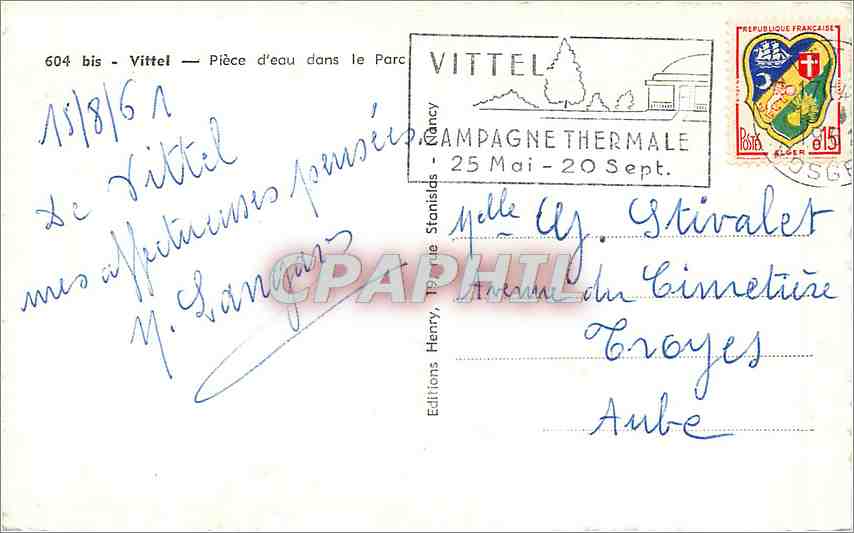 604 bis - Vittel — Pièce d'eau dans le Parc
15/8/61
De Vittel
mes affectueuses pensées.
Editions Henry, rue Stanislas - Nancy
VITTEL
CAMPAGNE THERMALE
25 Mai - 20 Sept.
REPUBLIQUE FRANÇAISE
POSTES
0,15
ALGER
VOSGES
Melle Stivalet
Avenue du Cimetière
Troyes
Aube
CPAPHIL